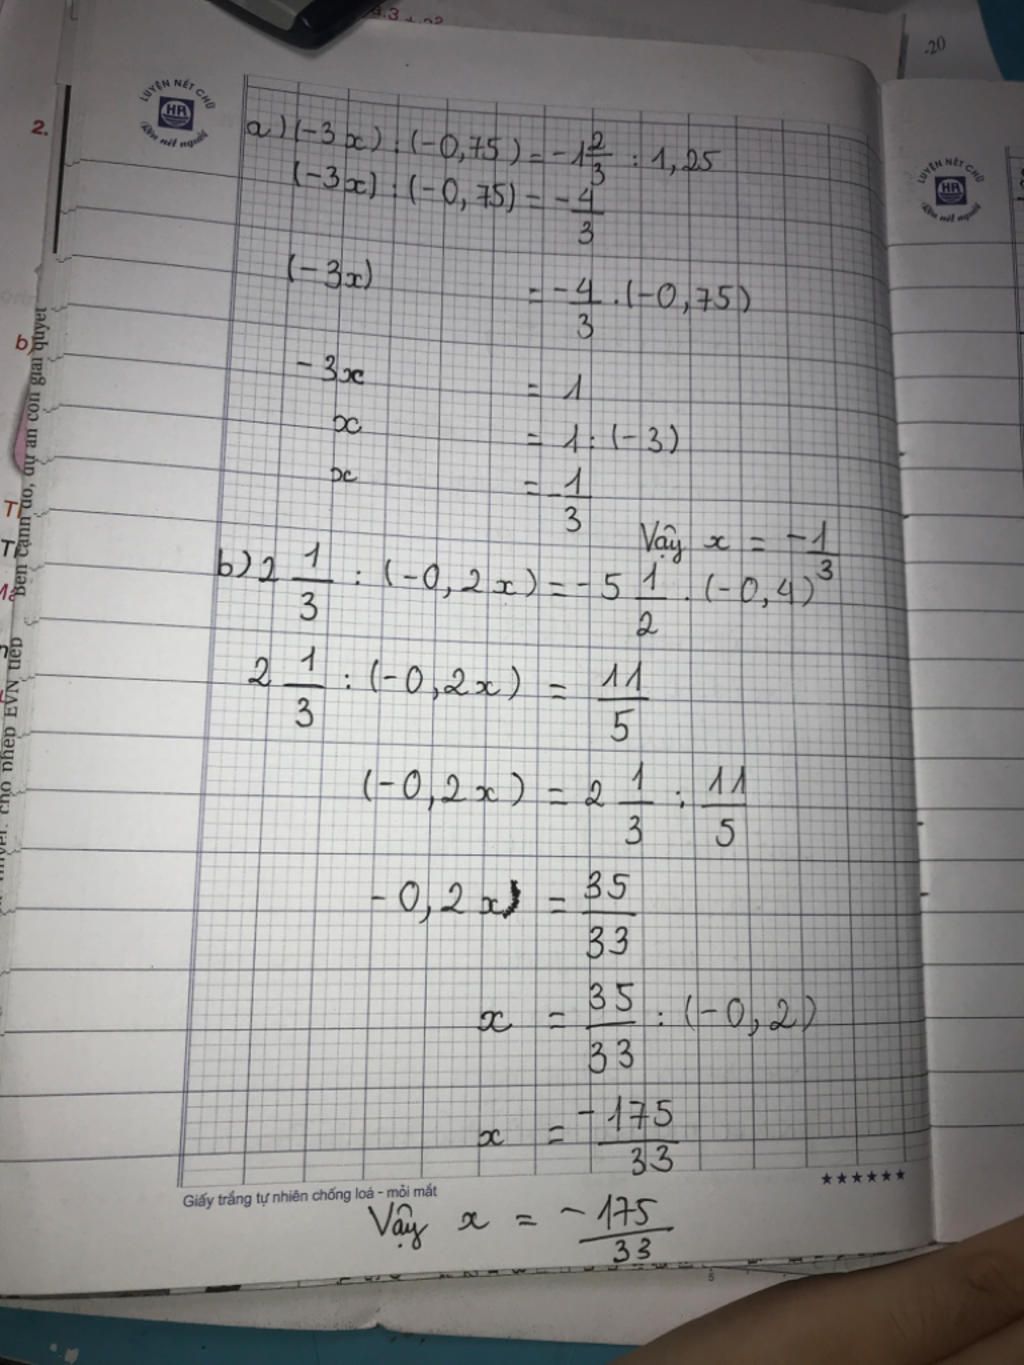 9.3
-20
LUYỆN NÉT CHỮ
HR
Rèn nết người
LUYỆN NÉT CHỮ
HR
Rèn nết người
2.
b)
Bên cạnh đó, dự án còn giải quyết
cho phép EVN tiếp
a) (-3x) : (-0,75) = -1 2/3 : 1,25
(-3x) : (-0,75) = -4/3
(-3x) = -4/3 . (-0,75)
-3x = 1
x = 1 : (-3)
x = -1/3
Vậy x = -1/3
b) 2 1/3 : (-0,2x) = -5 1/2 . (-0,4)
2 1/3 : (-0,2x) = 11/5
(-0,2x) = 2 1/3 : 11/5
-0,2x) = 35/33
x = 35/33 : (-0,2)
x = -175/33
Giấy trắng tự nhiên chống loá - mỏi mắt
Vậy x = -175/33